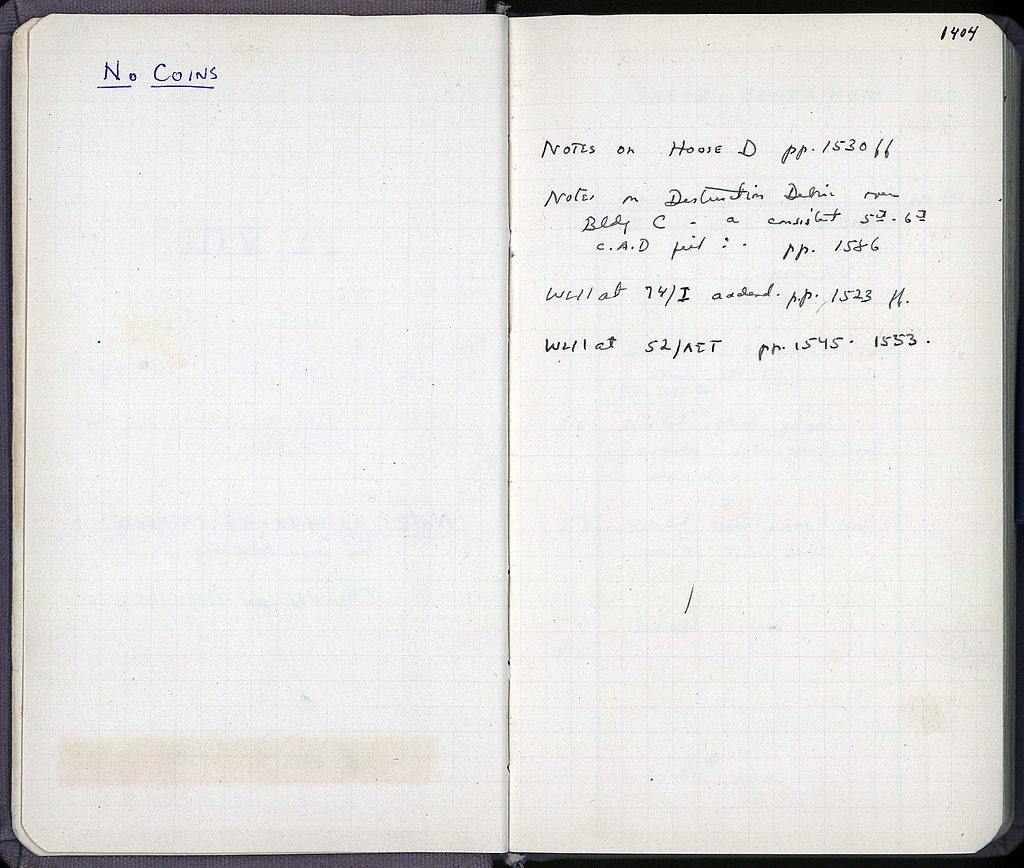 No Coins
1404
Notes on House D pp. 1530 ff
Notes on Destruction Debris over
Bldg C - a consistent 5th - 6th
C. A.D fill : - pp. 1586
Well at 74/I addend. pp. 1523 ff.
Well at 52/ pp. 1545 - 1553.